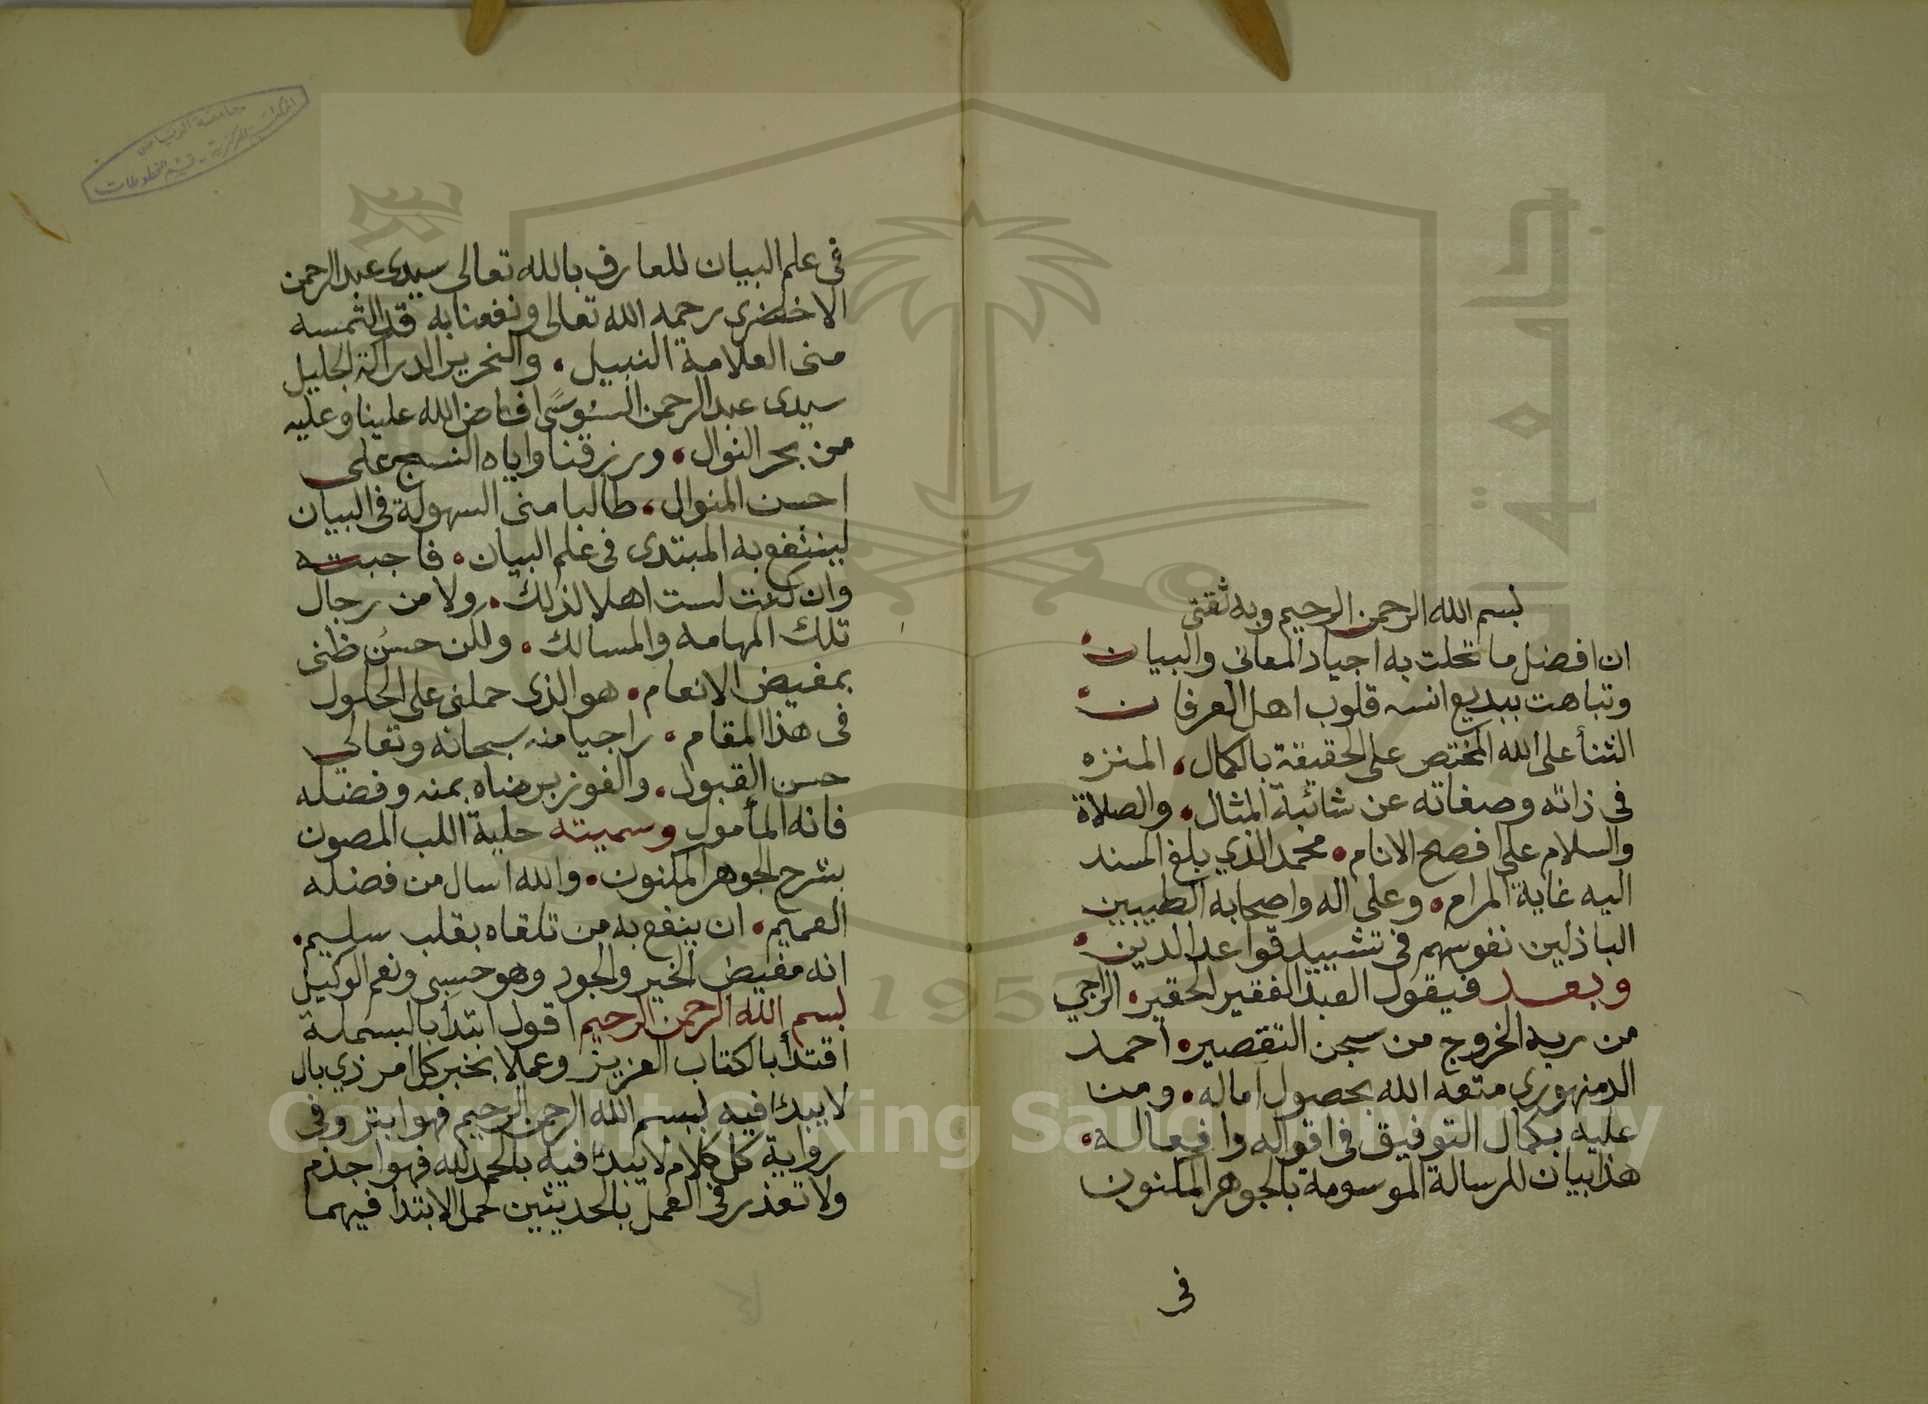 بسم الله الرحمن الرحيم وبه ثقتى
ان افضل ما تحلت به اجياد المعانى والبيان
وتباهت ببديع انسه قلوب اهل العرفان
الثنأ على الله المختص على الحقيقة بالكمال، المنزه
فى ذاته وصفاته عن شائبة المثال، والصلاة
والسلام على افصح الانام، محمد الذي بلغ المسند
اليه غاية المرام، وعلى اله واصحابه الطيبين
الباذلين نفوسهم فى تشييد قواعد الدين،
وبعد فيقول العبد الفقير الحقير، الراجي
من ربه الخروج من سجن التقصير، احمد
الدمنهوري متعه الله بحصول اماله، ومن
عليه بكمال التوفيق فى اقواله وافعاله،
هذا بيان للرسالة الموسومة بالجوهر المكنون
فى
فى علم البيان للعارف بالله تعالى سيدى عبد الرحمن
الاخضري رحمه الله تعالى ونفعنا به قد التمسه
منى العلامة النبيل، والنحرير الدراكة الجليل
سيدى عبد الرحمن السوسى افاض الله علينا وعليه
من بحر النوال، ورزقنا واياه النسج على
احسن المنوال، طالبا منى السهولة فى البيان
لينتفع به المبتدى فى علم البيان، فاجبته
وان كنت لست اهلا لذلك، ولا من رجال
تلك المهامه والمسالك، ولكن حسن ظنى
بمفيض الانعام، هو الذى حملنى على الحلول
فى هذا المقام، راجيا منه سبحانه وتعالى
حسن القبول، والفوز برضاه بمنه وفضله
فانه المأمول وسميته حلية اللب المصون
بشرح الجوهر المكنون، والله اسال من فضله
العميم، ان ينفع به من تلقاه بقلب سليم،
انه مفيض الخير والجود وهو حسبى ونعم الوكيل
بسم الله الرحمن الرحيم اقول ابتدأ بالبسملة
اقتدأ بالكتاب العزيز وعملا بخبر كل امر ذي بال
لا يبدأ فيه ببسم الله الرحمن الرحيم فهو ابتر وفى
رواية كل كلام لا يبدأ فيه بالحمد لله فهو اجذم
ولا تعذر فى العمل بالحديثين لحمل الابتدا فيهما
جامعة الرياض
المكتبة المركزية - قسم المخطوطات
جامعة
1957
Copyright © King Saud University